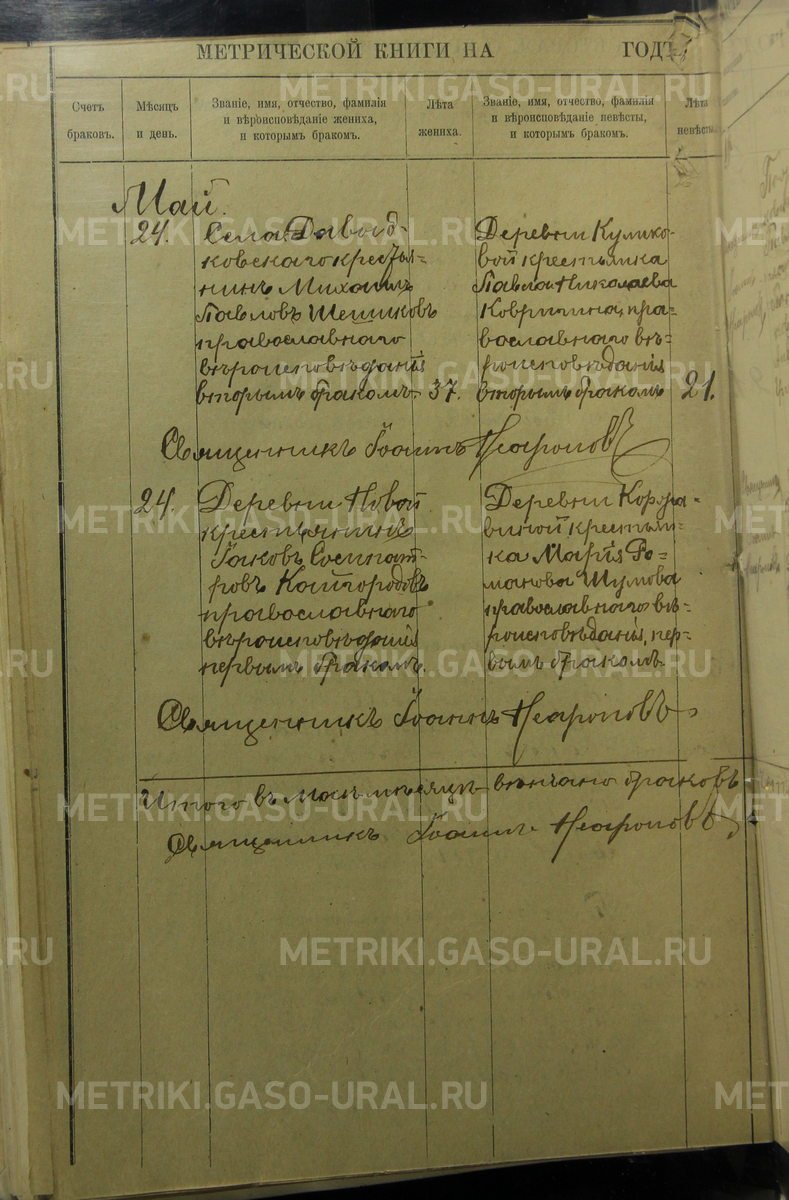 МЕТРИЧЕСКОЙ КНИГИ НА ГОДЪ
Счетъ браковъ.
Мѣсяцъ и день.
Званіе, имя, отчество, фамилія и вѣроисповѣданіе жениха, и которымъ бракомъ.
Лѣта жениха.
Званіе, имя, отчество, фамилія и вѣроисповѣданіе невѣсты, и которымъ бракомъ.
Лѣта невѣсты
Май.
24.
Села Давыд-
ковскаго крестья-
нинъ Михаилъ
Павловъ
православнаго
вѣроисповѣданія
вторымъ бракомъ
37.
Деревни Кулико-
вой крестьянка
Павла Николаева
пра-
вославнаго вѣ-
роисповѣданія
вторымъ бракомъ
21.
Священникъ Іоаннъ
24.
Деревни Новой
крестьянинъ
Іаковъ Сосипат-
ровъ Кайгородовъ
православнаго
вѣроисповѣданія
первымъ бракомъ.
Деревни
крестьян-
ка Марія Ро-
манова Шумова
православнаго вѣ-
роисповѣданія, пер-
вымъ бракомъ
Священникъ Іоаннъ
Итого въ маѣ мѣсяцѣ вѣнчано браковъ
Священникъ Іоаннъ
METRIKI.GASO-URAL.RU